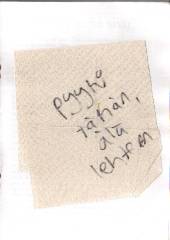 pyyhi
tähän,
älä
lehteen